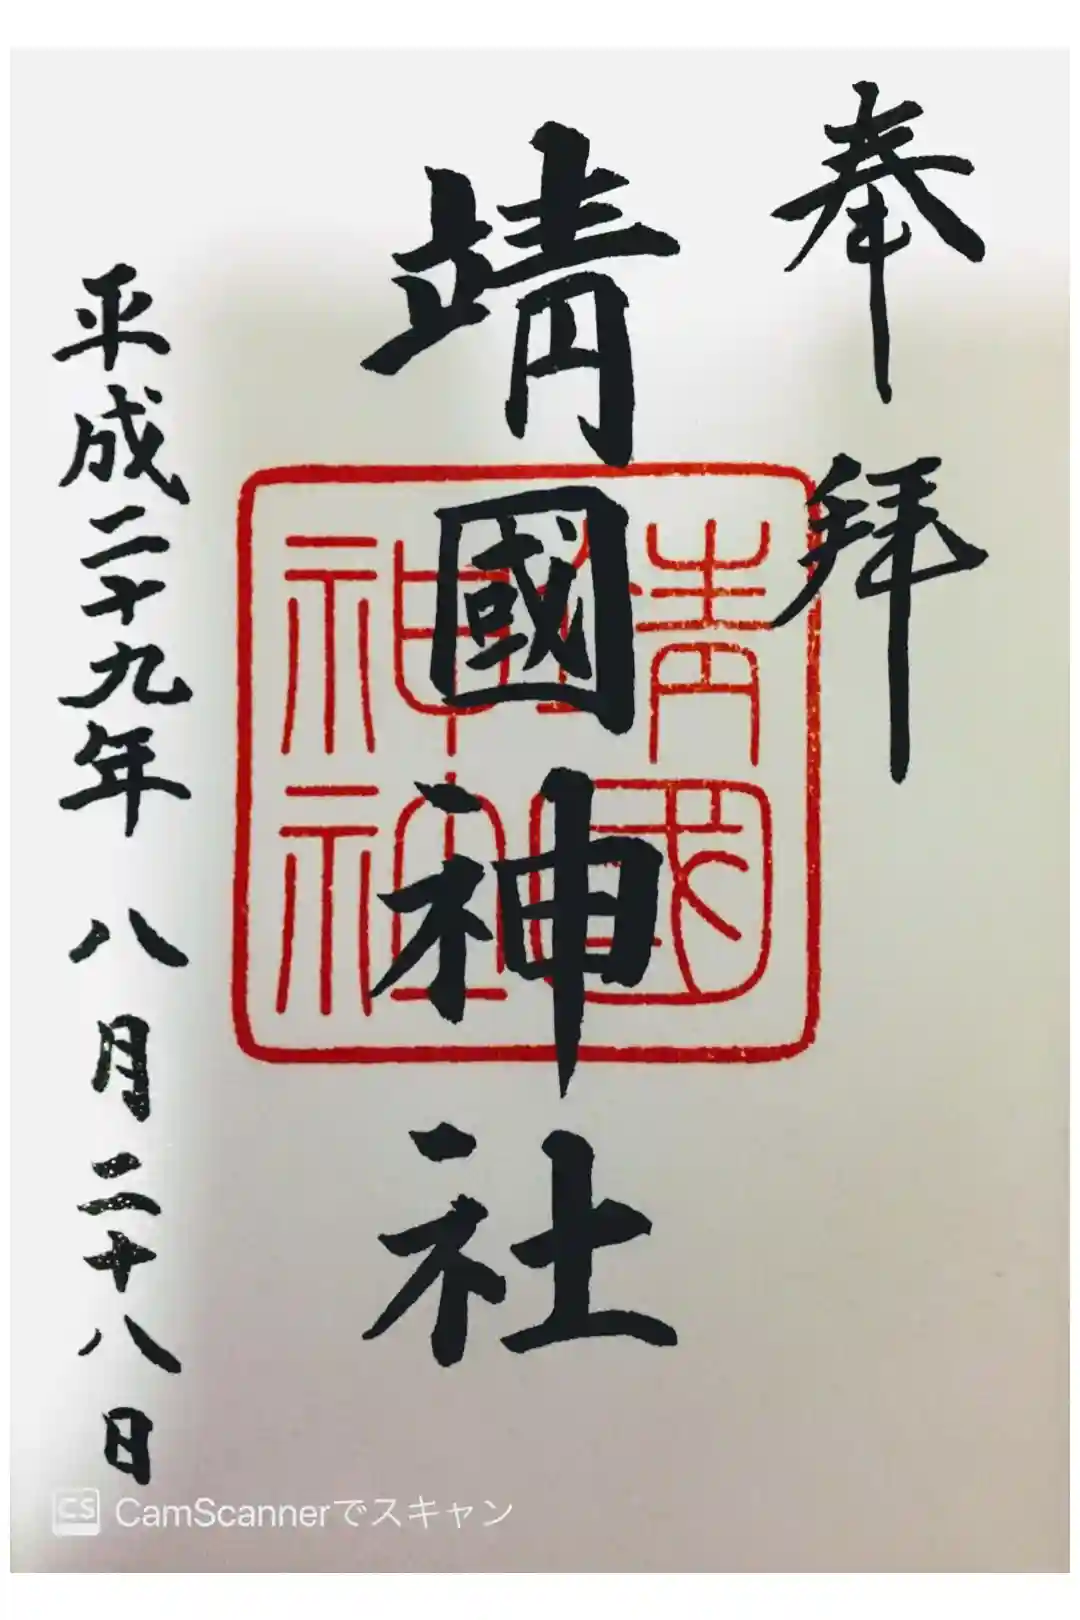 奉拜
靖國神社
靖國神社
平成二十九年 八月二十八日
CS CamScannerでスキャン